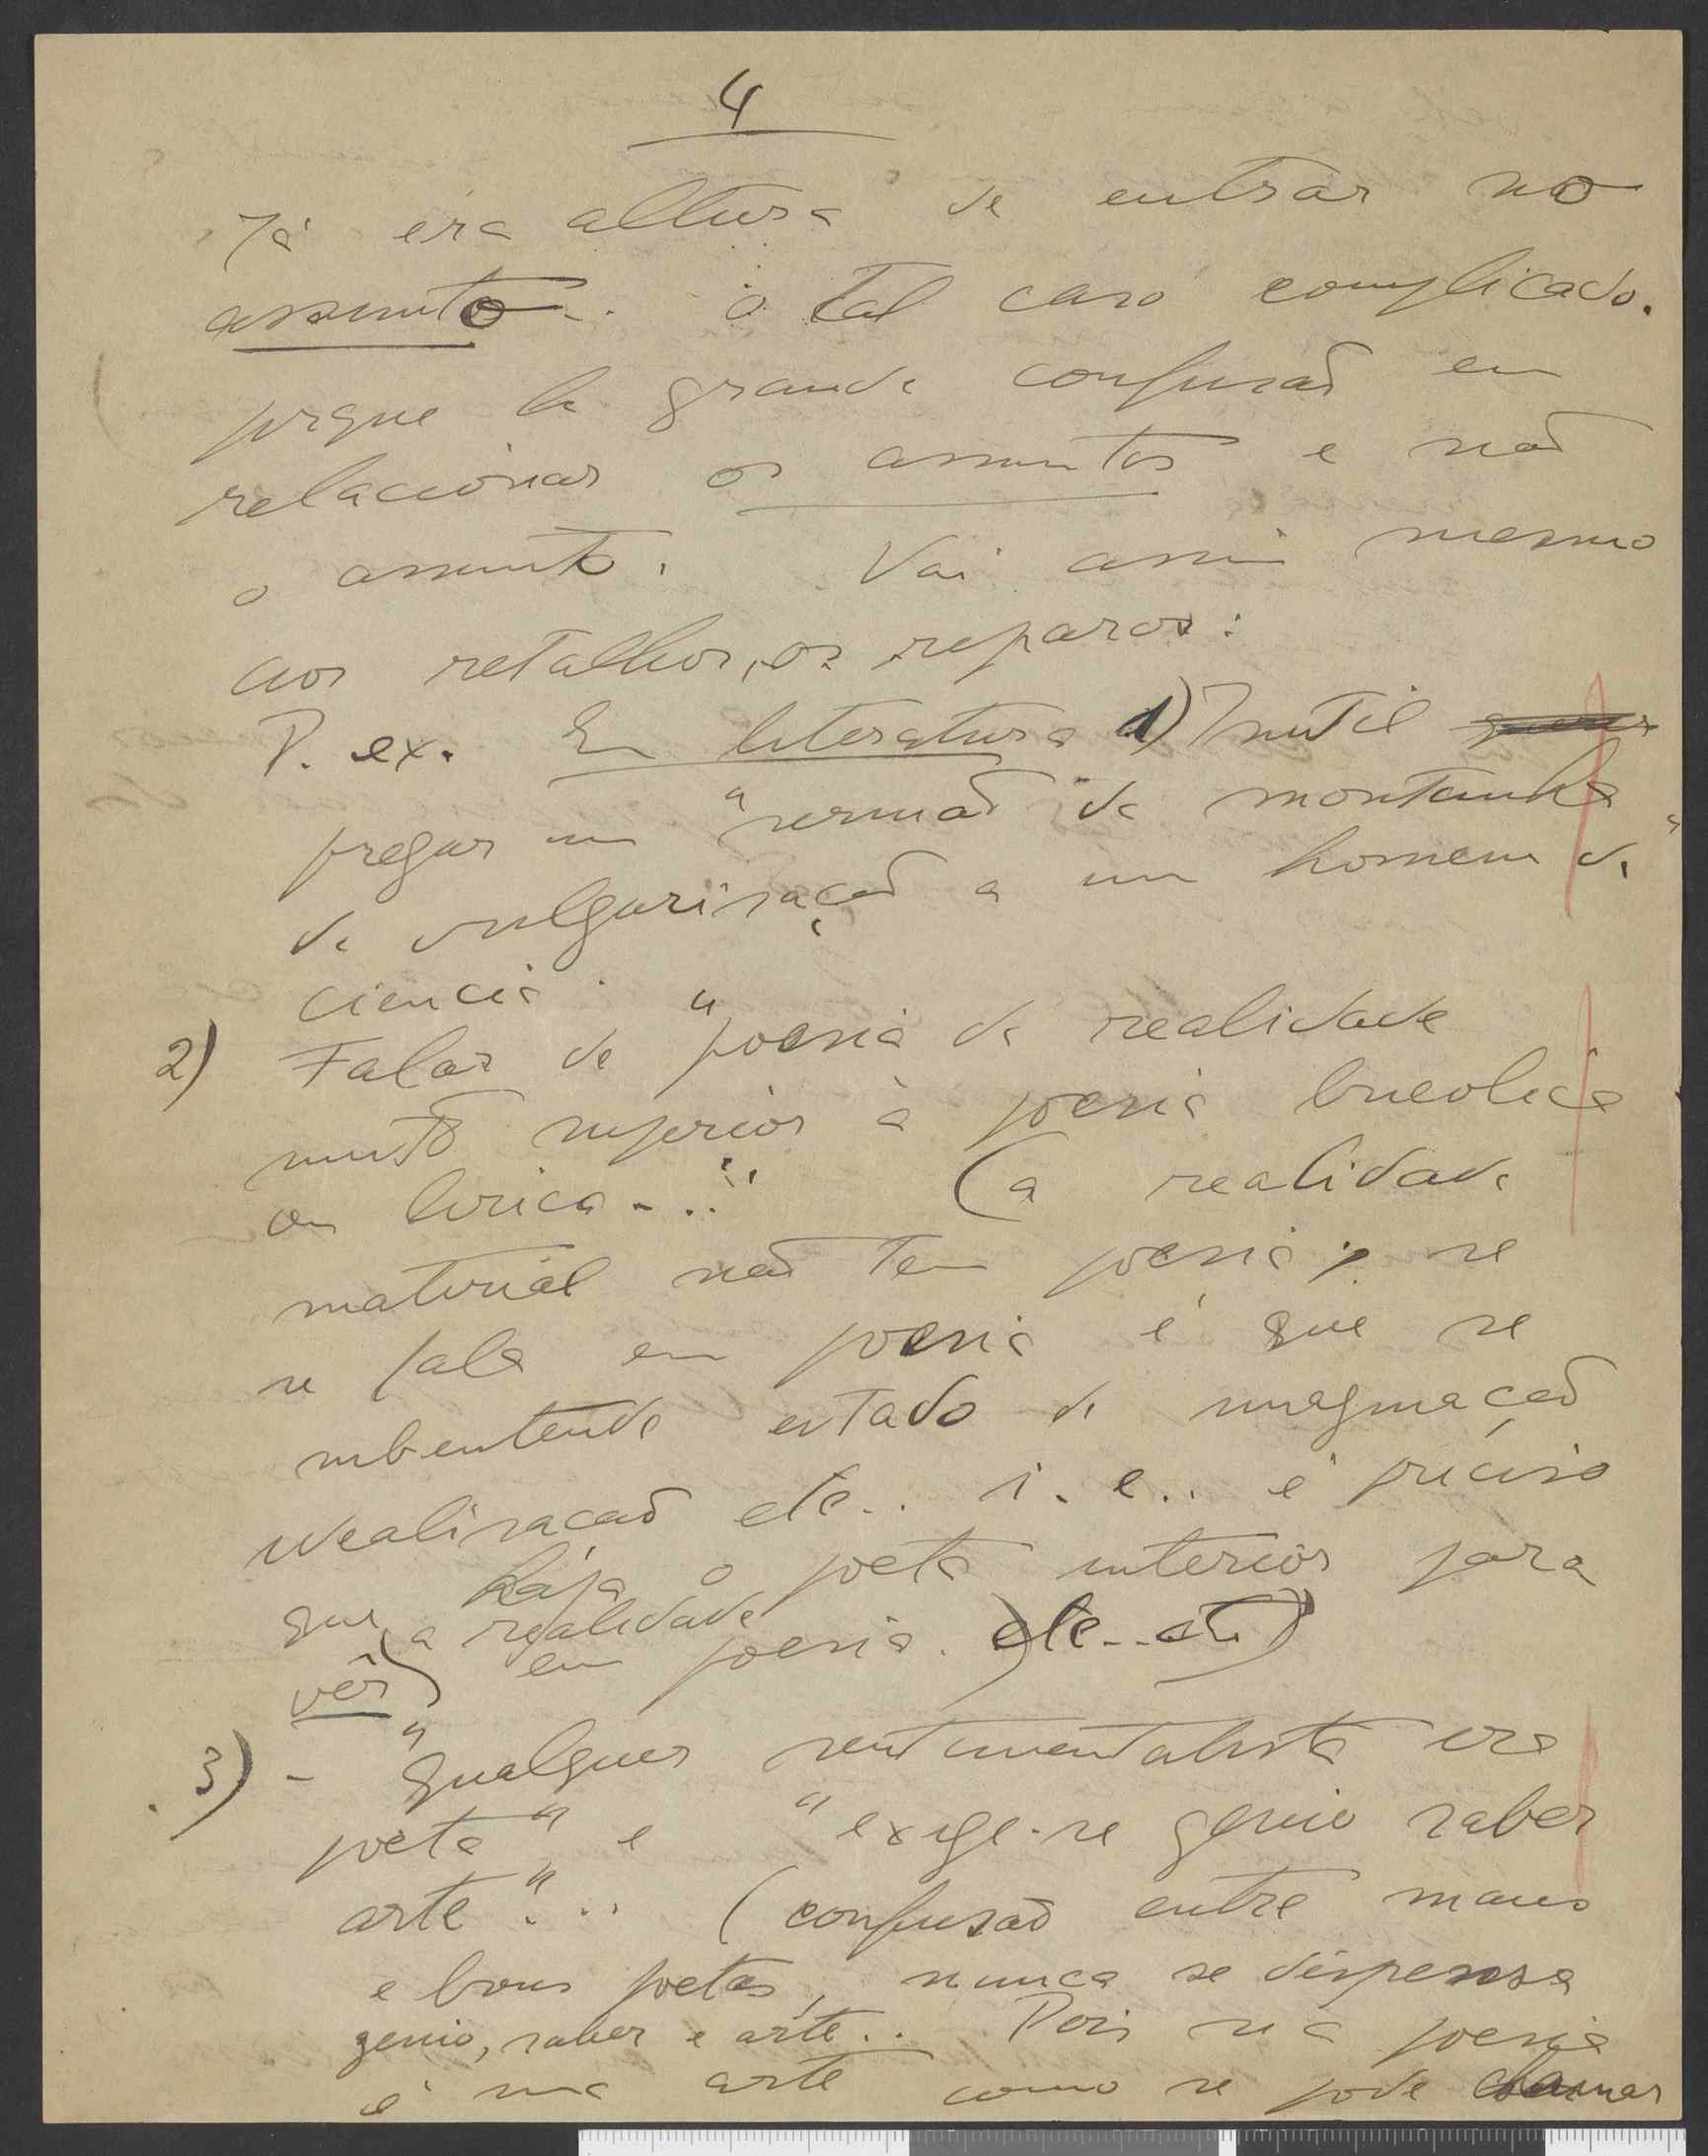 4
Já era altura de entrar no
assunto... o tal caso complicado.
porque ha grande confusaõ em
relacionar os assuntos e naõ
o assunto. Vai assim mesmo
aos retalhos, os reparos:
P. ex. Em literatura 1) Inutil
pregar um "sermaõ da montanha"
de vulgarisaçaõ a um homem de
ciencia.
2) Falar de "poesia da realidade
muito superior à poesia bucolica
ou lirica..." (a realidade
material naõ tem poesia; se
se fala em poesia é que se
subentende estado de imaginaçaõ
idealisaçaõ etc.. i. e.. é preciso
que haja o poeta interior para
vêr a realidade
em poesia. etc... etc)
3) - "qualquer sentimentalista era
poeta" e "exige-se genio saber
arte"... (confusaõ entre maus
e bons poetas, nunca se dispensa
genio, saber e arte.. Pois se a poesia
é uma arte como se pode chamar